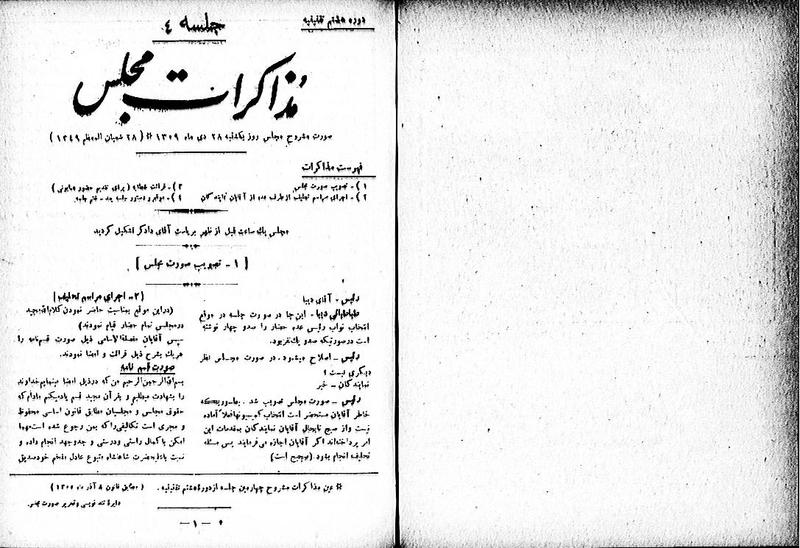 دوره هشتم تقنینیه
جلسه ۴
مذاکرات مجلس
صورت مشروح مجلس روز یکشنبه ۲۸ دی ماه ۱۳۰۹ ※ ( ۲۸ شعبان المعظم ۱۳۴۹ )
فهرست مذاکرات
۱ ) - تصویب صورت مجلس
۲ ) - اجرای مراسم تحلیف از طرف عده از آقایان نمایندگان
۳ ) - قرائت خطابه ( برای تقدیم حضور همایونی )
۴ ) - موقع و دستور جلسه بعد - ختم جلسه
مجلس یک ساعت قبل از ظهر بریاست آقای دادگر تشکیل گردید
[ ۱ - تصویب صورت مجلس ]
رئیس - آقای دیبا
طباطبائی دیبا - این جا در صورت جلسه در موقع
انتخاب نواب رئیس عده حضار را صدو چهار نوشته
است درصورتیکه صدو یک نفر بود.
رئیس - اصلاح میشود. در صورت مجلس نظر
دیگری نیست ؟
نمایندگان - خیر
رئیس - صورت مجلس تصویب شد . بطوریکه
خاطر آقایان مستحضر است انتخاب کمیسیونها فعلا آماده
نیست و از صبح تا بحال آقایان نمایندگان بمقدمات این
امر پرداخته‌اند اگر آقایان اجازه می‌فرمایند پس مسئله
تحلیف انجام بشود (صحیح است)
[ ۲ - اجرای مراسم تحلیف ]
(در این موقع بمناسبت حاضر نمودن کلام‌الله مجید
در مجلس تمام حضار قیام نمودند)
سپس آقایان مفصلة‌الاسامی ذیل صورت قسم‌نامه را
هر یک بشرح ذیل قرائت و امضا نمودند.
صورت قسم نامه
بسم‌الله الرحمن الرحیم من که در ذیل امضا مینمایم خداوند
را بشهادت میطلبم و بقرآن مجید قسم یاد میکنم مادام که
حقوق مجلس و مجلسیان مطابق قانون اساسی محفوظ
و مجری است تکالیفی را که بمن رجوع شده است مهما
امکن با کمال راستی و درستی و جد و جهد انجام داده و
نسبت باعلیحضرت شاهنشاه متبوع عادل مفخم خود صدیق
※ عین مذاکرات مشروح چهارمین جلسه از دوره هشتم تقنینیه .
( مطابق قانون ۸ آذر ماه ۱۳۰۵ )
دایره تند نویسی و تحریر صورت مجلس
— ۱ —